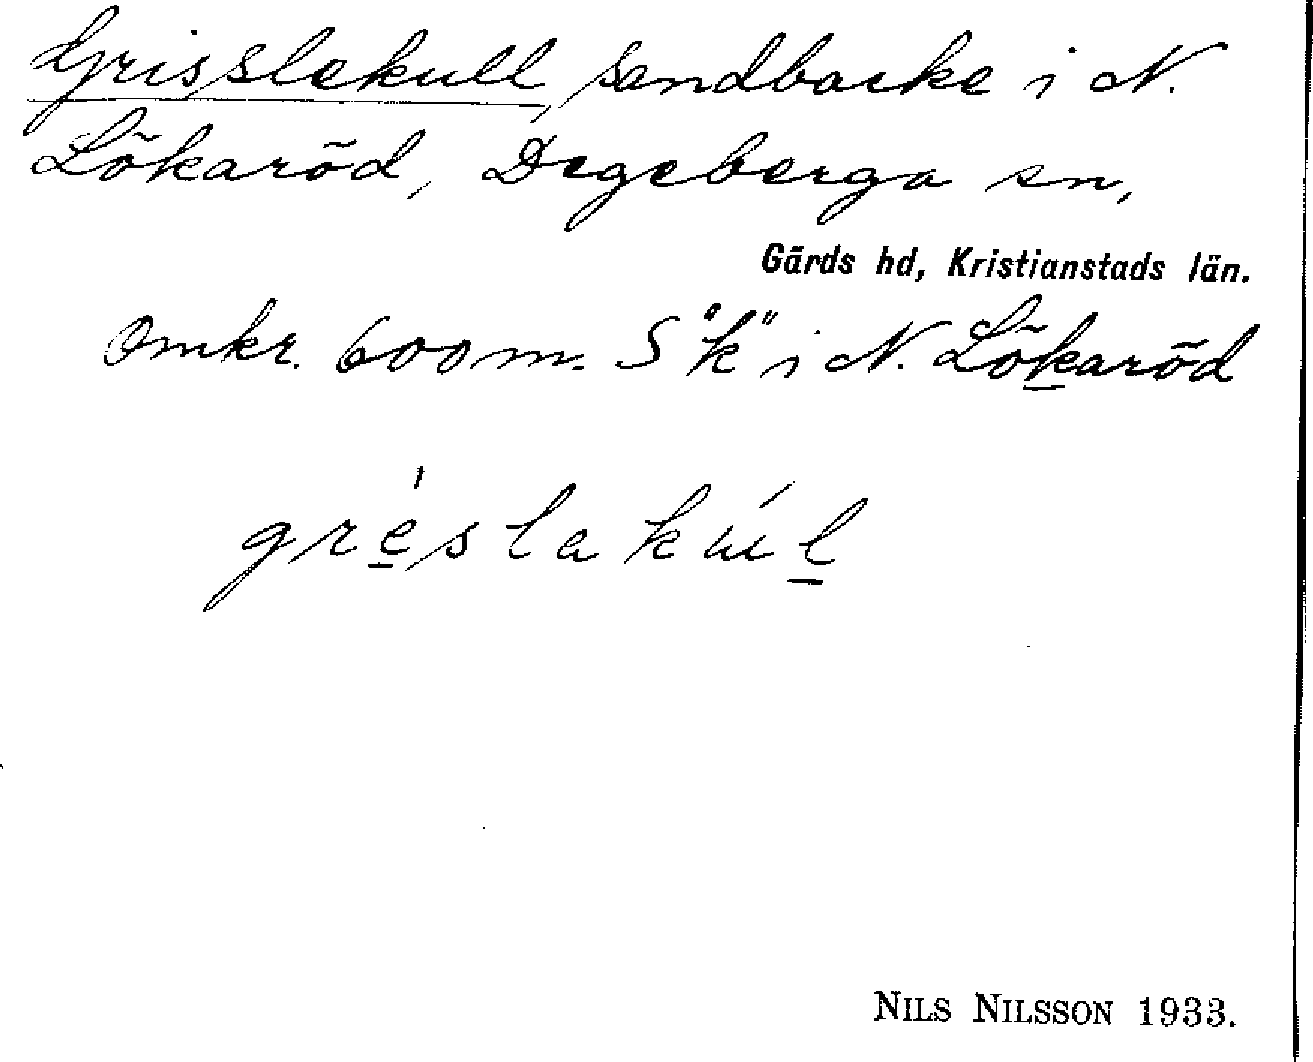 Grisslekull, sandbacke i N.
Lökaröd, Degeberga sn,
Gärds hd, Kristianstads län.
Omkr. 600 m. S "k" i N. Lökaröd
gre̱̍slakúḻ
NILS NILSSON 1933.